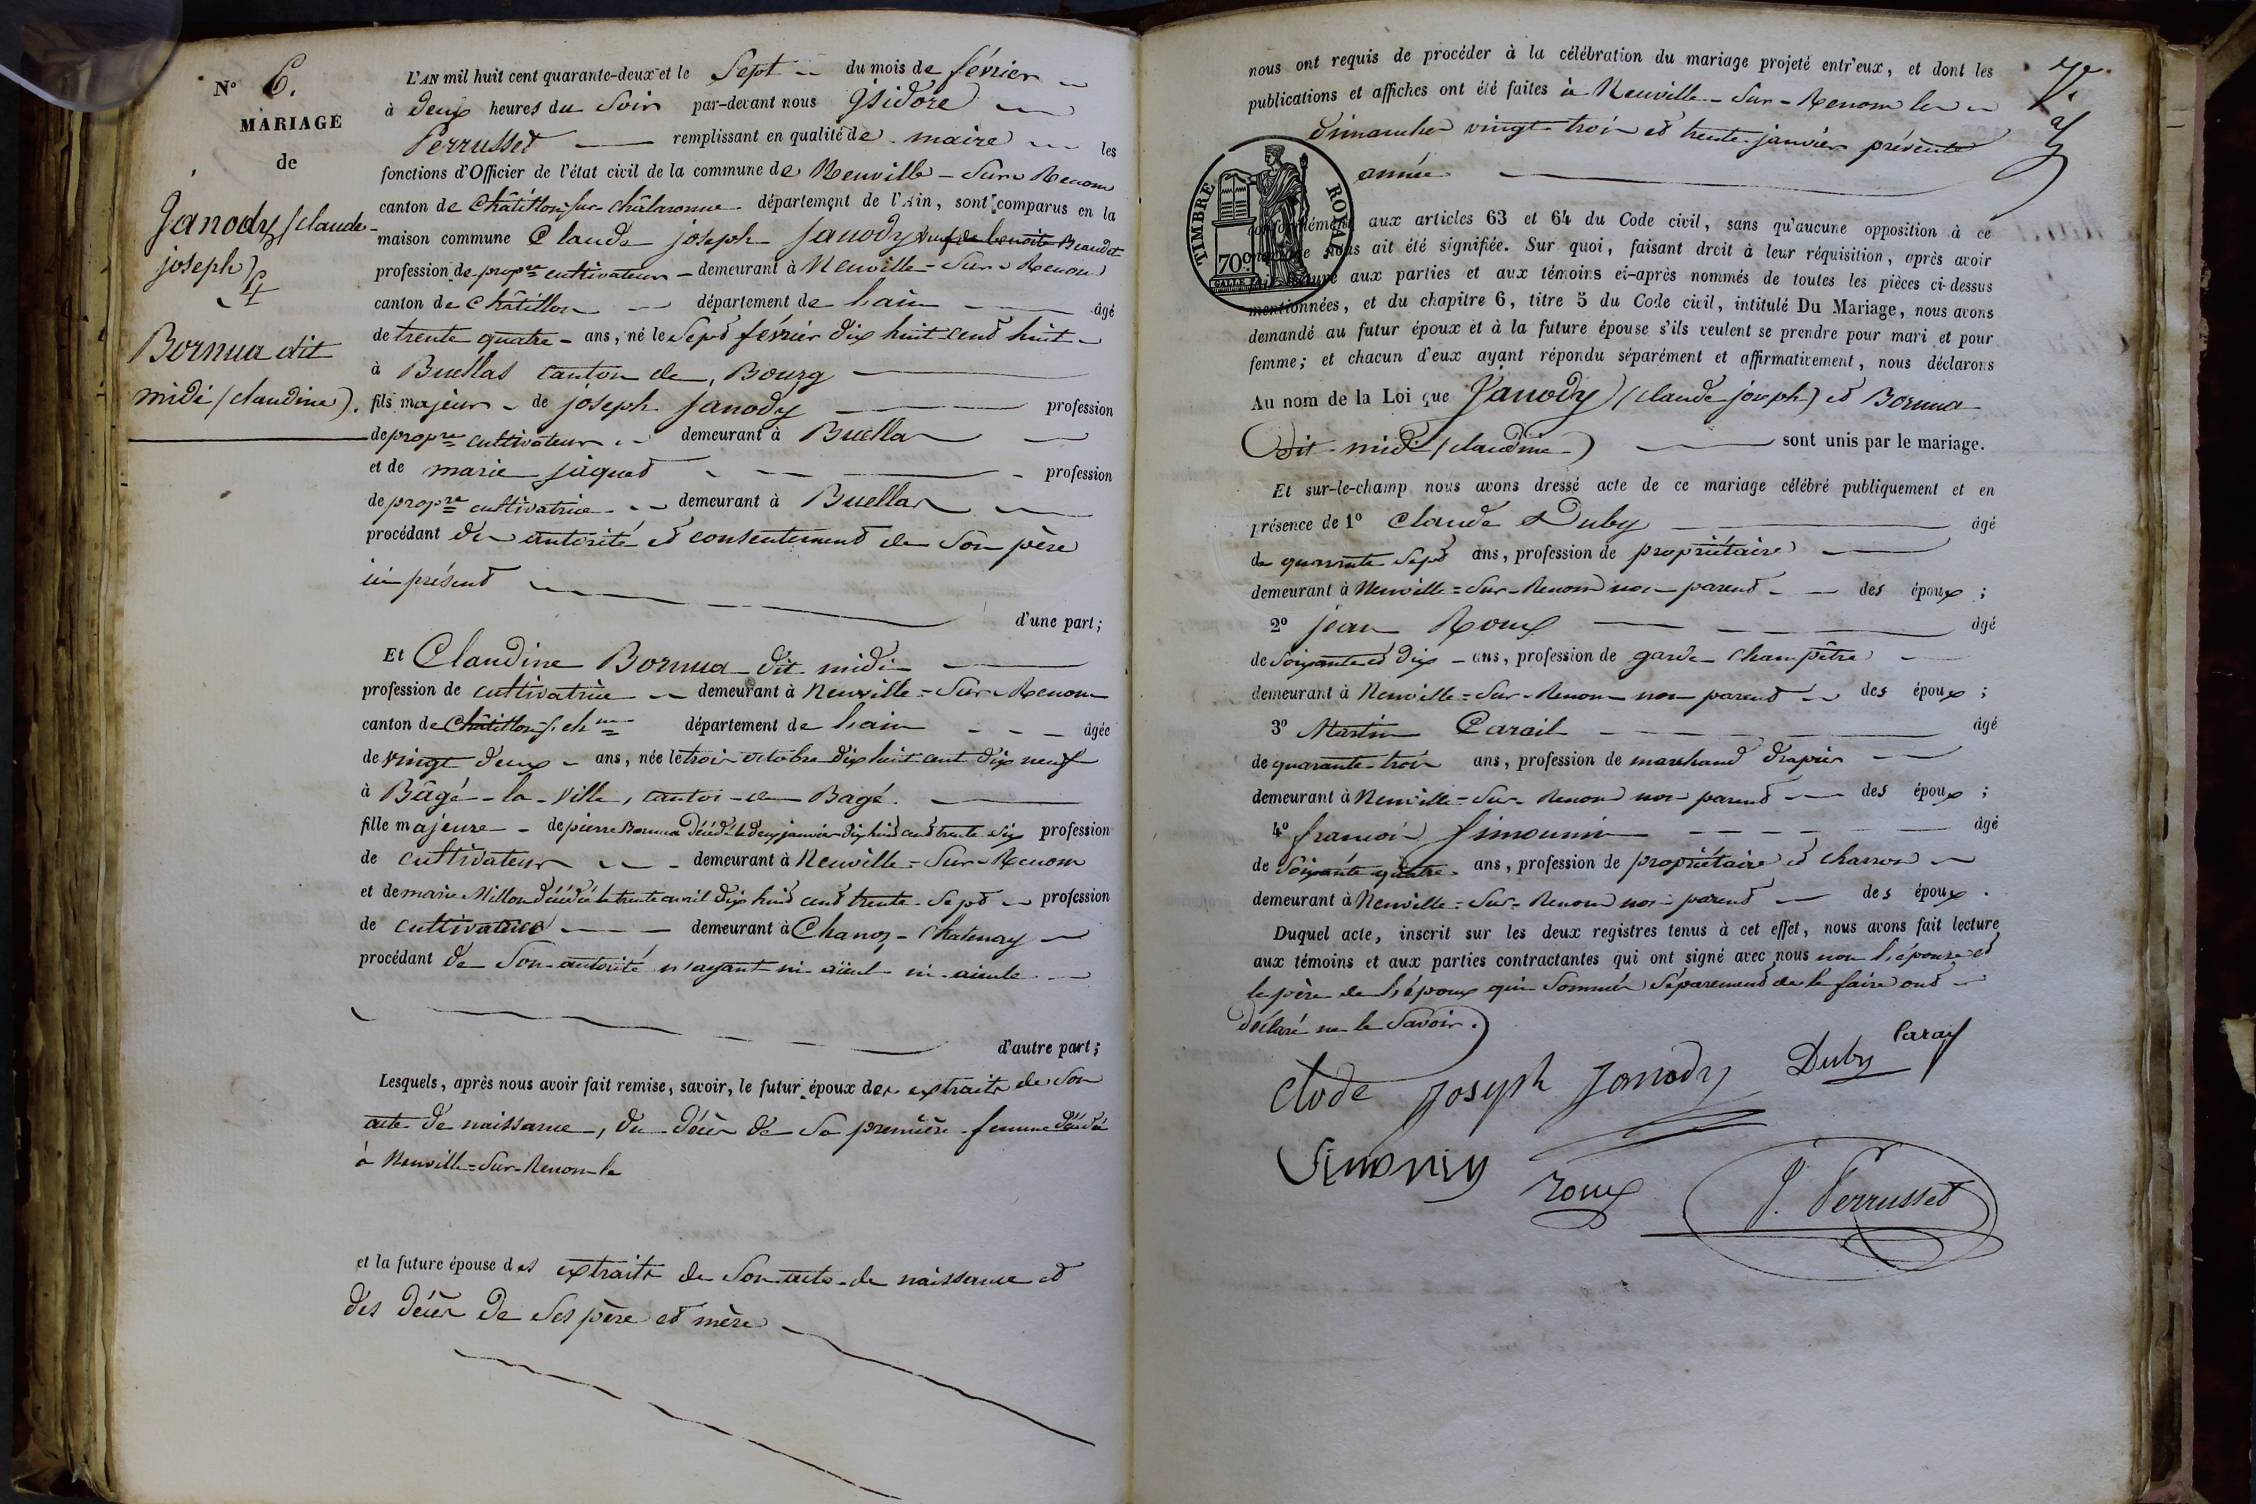 N° 6.
MARIAGE
de
Janody (claude
joseph)
&
Bornua dit
midi (claudine).
L'AN mil huit cent quarante-deux et le Sept du mois de février
à deux heures du Soir par-devant nous Isidore
Perrusset remplissant en qualité de maire les
fonctions d'Officier de l'état civil de la commune de Neuville-Sur-Renom
canton de Châtillon-sur-châlaronne département de l'Ain, sont comparus en la
maison commune Claude joseph Janody veuf de benoite Beaudet
profession de propre cultivateur demeurant à Neuville=Sur-Renom
canton de Châtillon département de L'ain âgé
de trente quatre ans, né le Sept février dix huit cent huit
à Buellas canton de Bourg
fils majeur de joseph Janody profession
de propre cultivateur demeurant à Buellas
et de marie jâquet profession
de propre cultivatrice demeurant à Buellas
procédant de autorité et consentement de Son père
ici présent
d'une part;
Et Claudine Bornua dit midi
profession de cultivatrice demeurant à Neuville=Sur-Renom
canton de Châtillon s. chne département de L'ain âgée
de vingt deux ans, née le trois octobre dix huit cent dix neuf
à Bâgé-la-Ville, canton de Bagé.
fille majeure de pierre Bornua décédé le deux janvier dix huit cent trente six profession
de cultivateur demeurant à Neuville=Sur-Renom
et de marie Millon décédée le trente avril dix huit cent trente Sept profession
de cultivatrice demeurant à Chanoz-Chatenay
procédant de Son autorité n'ayant ni aïeul ni aïeule
d'autre part;
Lesquels, après nous avoir fait remise, savoir, le futur époux des extraits de Son
acte de naissance, du décès de Sa première femme décédée
à Neuville=Sur-Renom le
et la future épouse des extraits de Son acte de naissance et
des décès de Ses père et mère
nous ont requis de procéder à la célébration du mariage projeté entr'eux, et dont les
publications et affiches ont été faites à Neuville-Sur-Renom les
dimanches vingt-trois et trente janvier présente
année
TIMBRE ROYAL
70c
aux articles 63 et 64 du Code civil, sans qu'aucune opposition à ce
mariage nous ait été signifiée. Sur quoi, faisant droit à leur réquisition, après avoir
lecture aux parties et aux témoins ci-après nommés de toutes les pièces ci-dessus
mentionnées, et du chapitre 6, titre 5 du Code civil, intitulé Du Mariage, nous avons
demandé au futur époux et à la future épouse s'ils veulent se prendre pour mari et pour
femme; et chacun d'eux ayant répondu séparément et affirmativement, nous déclarons
Au nom de la Loi que Janody (claude joseph) et Bornua
dit midi (claudine) sont unis par le mariage.
Et sur-le-champ nous avons dressé acte de ce mariage célébré publiquement et en
présence de 1° Claude Duby âgé
de quarante Sept ans, profession de propriétaire
demeurant à Neuville=Sur-Renom non parent des époux;
2° jean Roux âgé
de Soixante et dix ans, profession de garde Champêtre
demeurant à Neuville=Sur-Renom non parent des époux;
3° Martin Carail âgé
de quarante-trois ans, profession de marchand drapier
demeurant à Neuville=Sur-Renom non parent des époux;
4° francois Simounin âgé
de Soixante quatre ans, profession de propriétaire et charron
demeurant à Neuville=Sur=Renom non parent des époux.
Duquel acte, inscrit sur les deux registres tenus à cet effet, nous avons fait lecture
aux témoins et aux parties contractantes qui ont signé avec nous non L'épouse et
le père de L'époux qui Sommés Séparement de le faire ont
déclaré ne le Savoir.
Clode joseph Janody Duby Carail
Simonin roux J. Perrusset